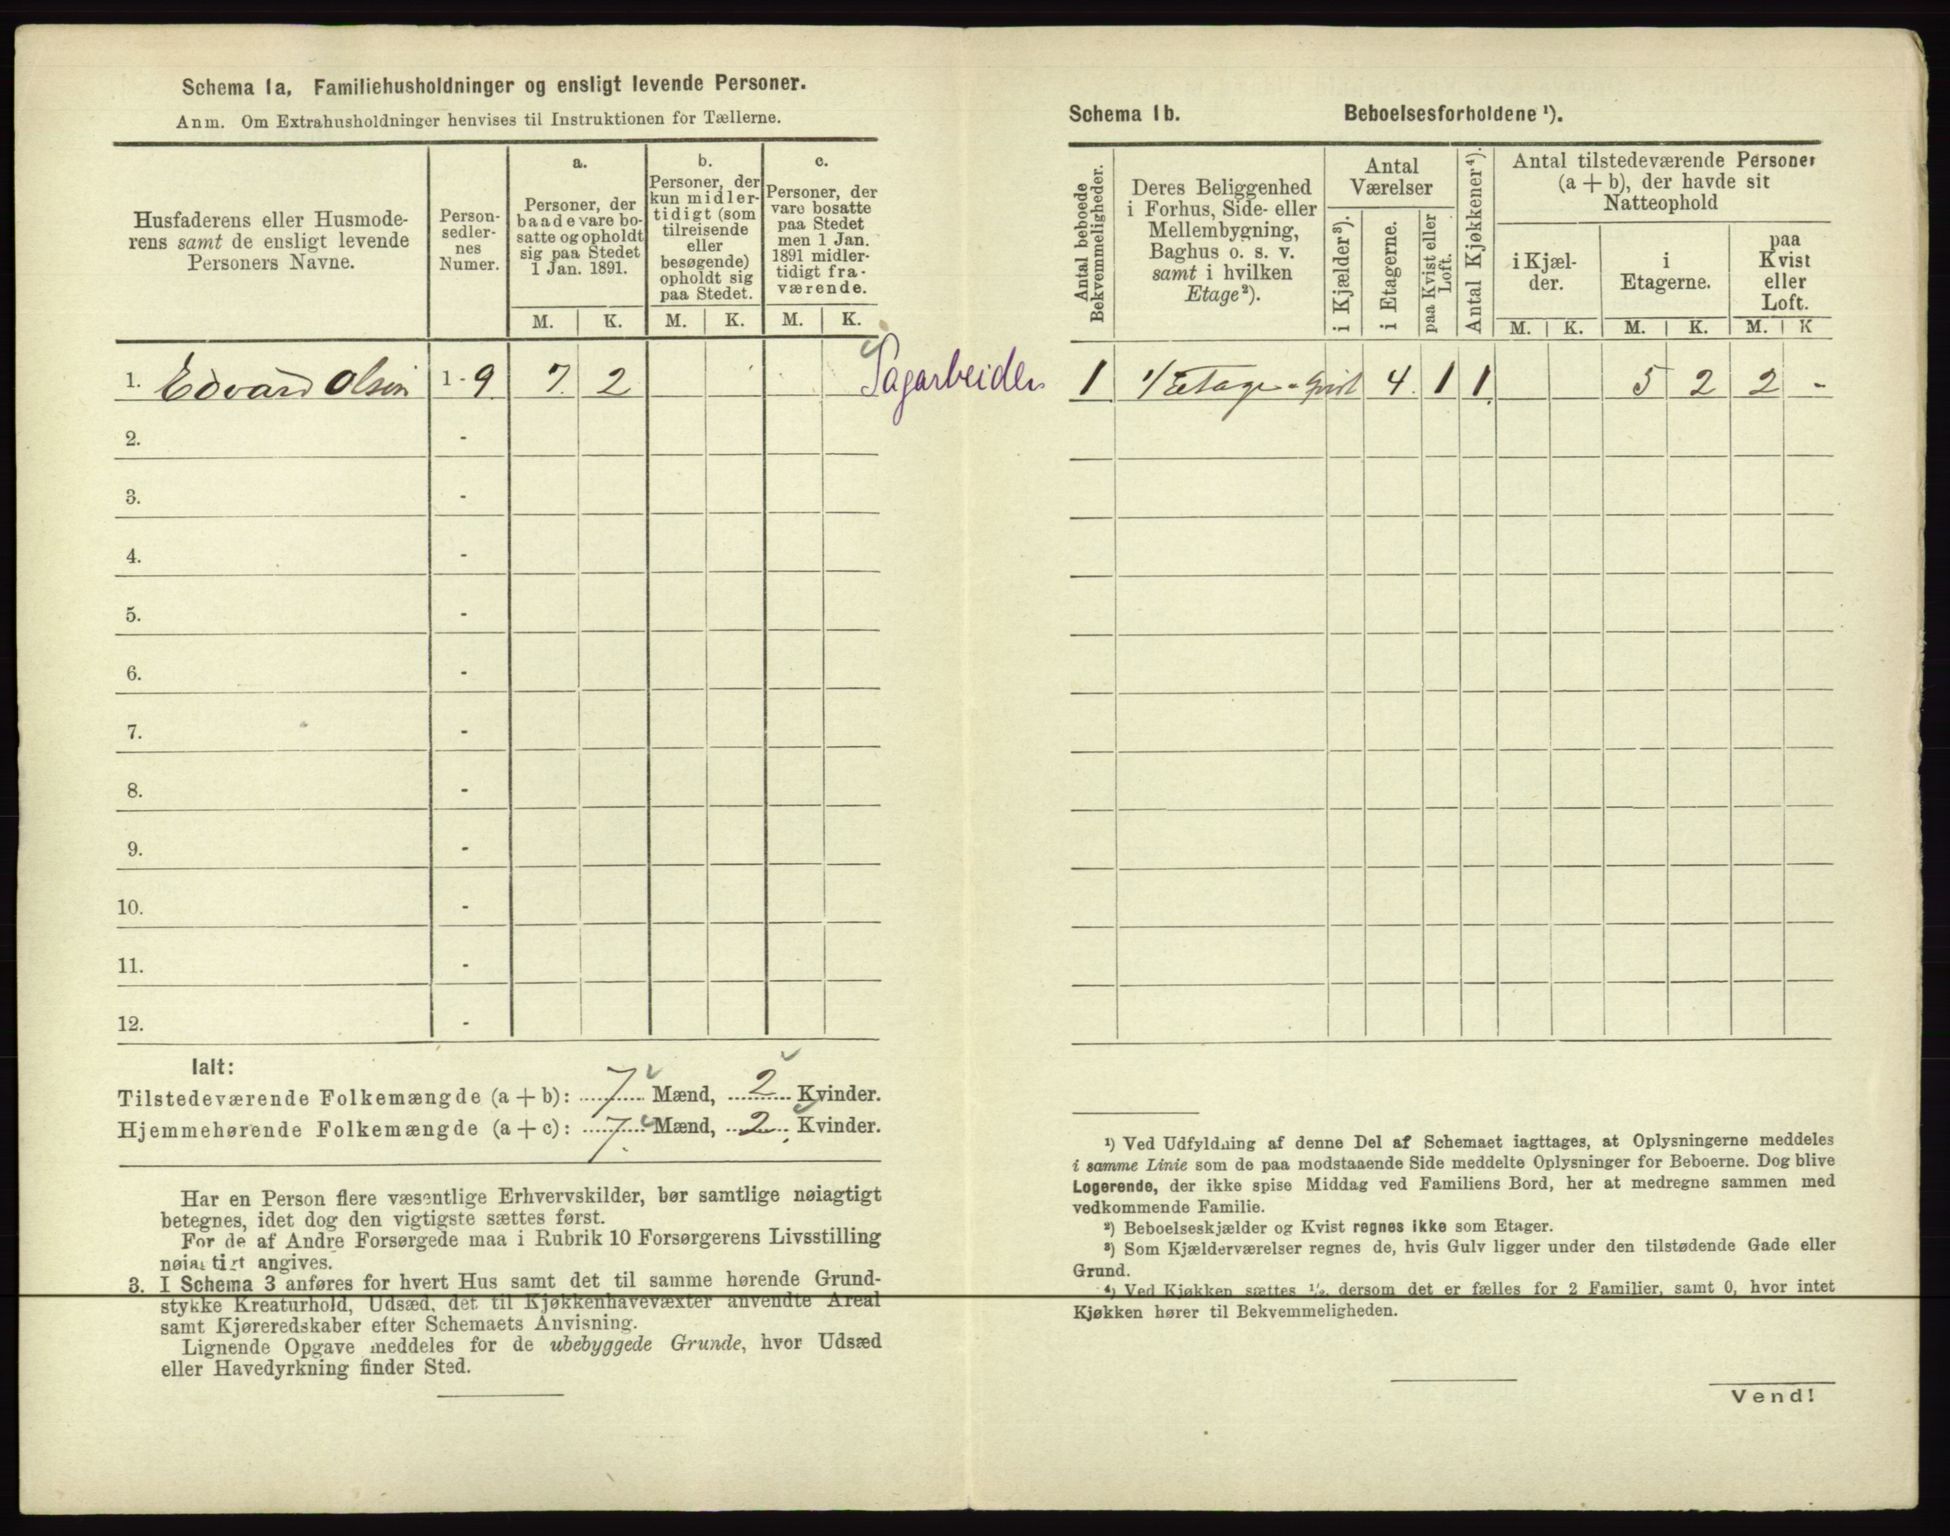 Schema 1a, Familiehusholdninger og ensligt levende Personer.
Anm. Om Extrahusholdninger henvises til Instruktionen for Tællerne.
Husfaderens eller Husmode-
rens samt de ensligt levende
Personers Navne.
Person-
sedler-
nes
Numer.
a.
Personer, der
baade vare bo-
satte og opholdt
sig paa Stedet
1 Jan. 1891.
b.
Personer, der
kun midler-
tidigt (som
tilreisende
eller
besøgende)
opholdt sig
paa Stedet.
c.
Personer, der
vare bosatte
paa Stedet
men 1 Jan.
1891 midler-
tidigt fra-
værende.
M. K. M. K. M. K.
1. Edvard Olsen 1 - 9 7 2 Sagarbeider
2. -
3. -
4. -
5. -
6. -
7. -
8. -
9. -
10. -
11. -
12. -
Ialt:
Tilstedeværende Folkemængde (a + b): 7 Mænd, 2 Kvinder.
Hjemmehørende Folkemængde (a + c): 7 Mænd, 2 Kvinder.
Har en Person flere væsentlige Erhvervskilder, bør samtlige nøiagtigt
betegnes, idet dog den vigtigste sættes først.
For de af Andre Forsørgede maa i Rubrik 10 Forsørgerens Livsstilling
nøiagtigt angives.
3. I Schema 3 anføres for hvert Hus samt det til samme hørende Grund-
stykke Kreaturhold, Udsæd, det til Kjøkkenhavevæxter anvendte Areal
samt Kjøreredskaber efter Schemaets Anvisning.
Lignende Opgave meddeles for de ubebyggede Grunde, hvor Udsæd
eller Havedyrkning finder Sted.
Schema 1b. Beboelsesforholdene ¹).
Antal beboede
Bekvemmeligheder.
Deres Beliggenhed
i Forhus, Side- eller
Mellembygning,
Baghus o. s. v.
samt i hvilken
Etage²).
Antal
Værelser
i Kjælder³).
i Etagerne.
paa Kvist eller
Loft.
Antal Kjøkkener⁴).
Antal tilstedeværende Personer
(a + b), der havde sit
Natteophold
i Kjæl-
der.
i
Etagerne.
paa
Kvist
eller
Loft.
M. K. M. K. M. K
1 1/ Etage - 4 1 1 5 2 2 -
¹) Ved Udfyldning af denne Del af Schemaet iagttages, at Oplysningerne meddeles
i samme Linie som de paa modstaaende Side meddelte Oplysninger for Beboerne. Dog blive
Logerende, der ikke spise Middag ved Familiens Bord, her at medregne sammen med
vedkommende Familie.
²) Beboelseskjælder og Kvist regnes ikke som Etager.
³) Som Kjælderværelser regnes de, hvis Gulv ligger under den tilstødende Gade eller
Grund.
⁴) Ved Kjøkken sættes ½, dersom det er fælles for 2 Familier, samt 0, hvor intet
Kjøkken hører til Bekvemmeligheden.
Vend!